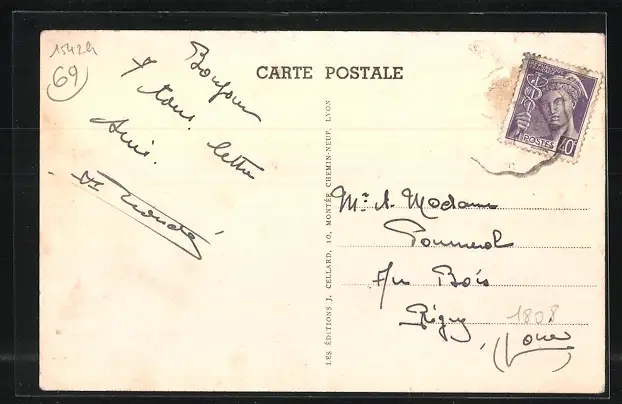 15424
69
CARTE POSTALE
Bonjour
à tous. lettre
suit.
LES ÉDITIONS J. CELLARD, 10, MONTÉE CHEMIN-NEUF, LYON
POSTES
40
Mr. & Madame
Pommerol
Au Bois
Régny 1808
(Loire)